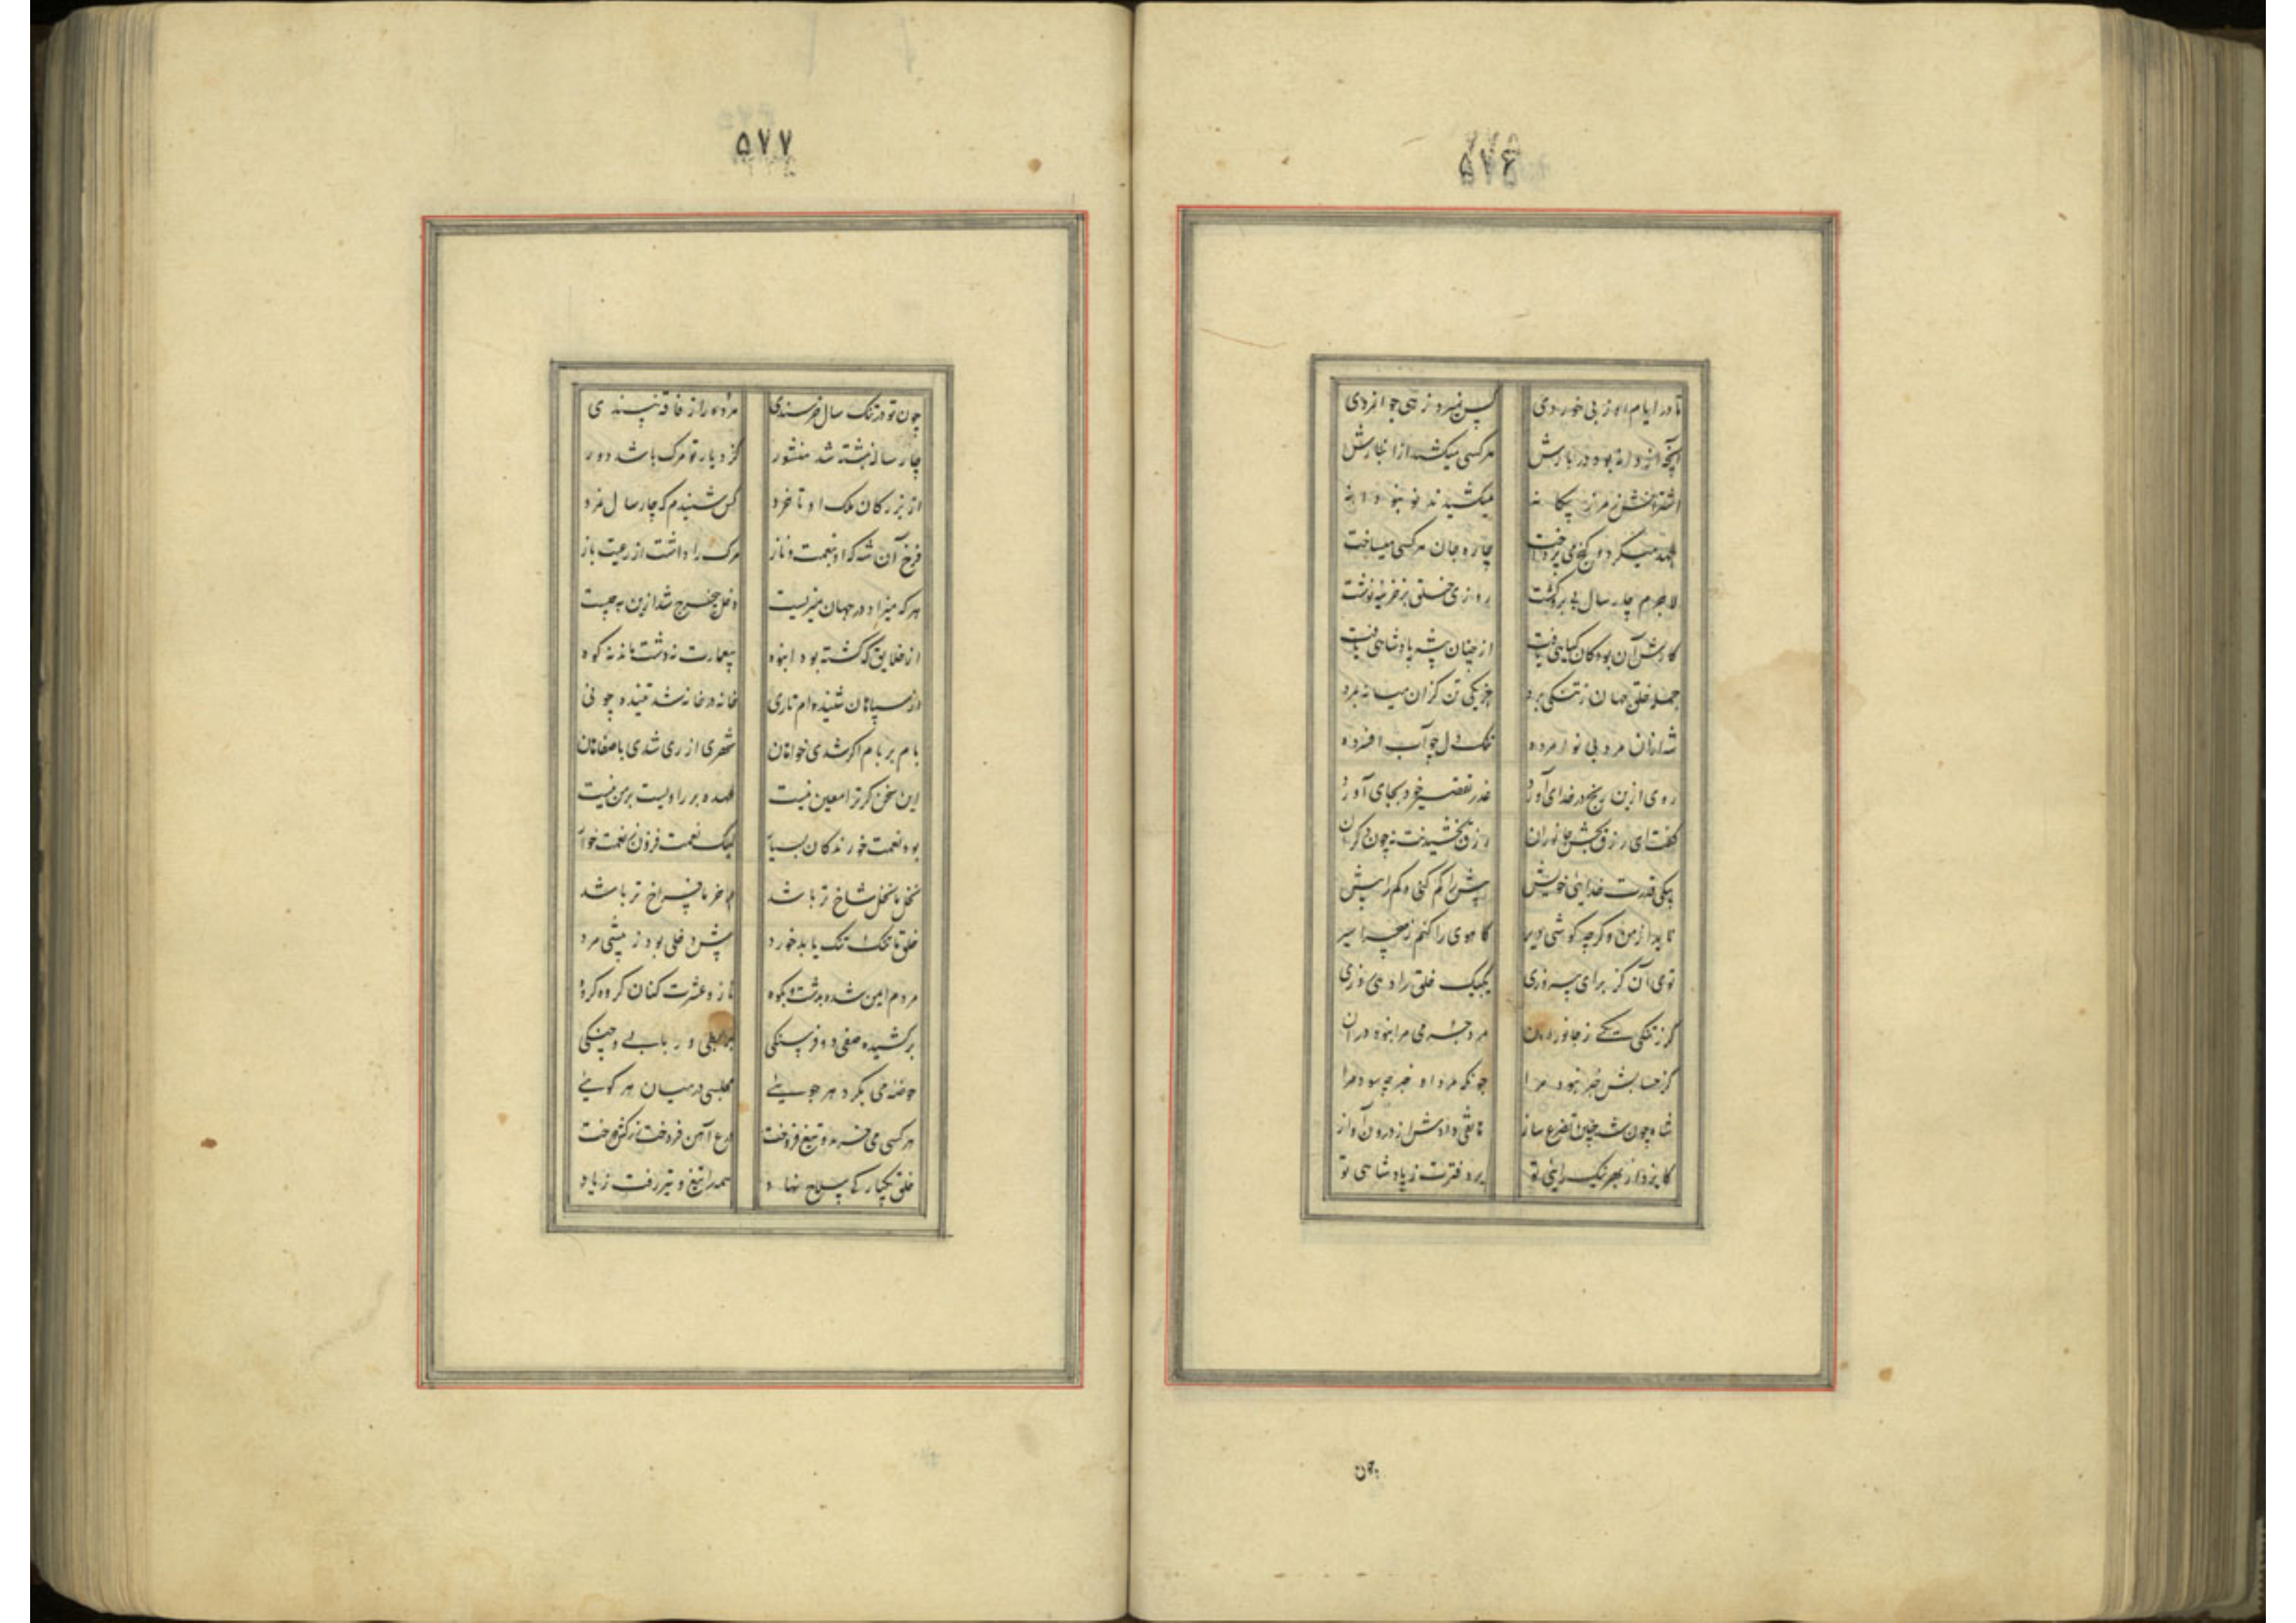 ۵۷۶
تا در ایام او ز بی خوردی کس نمیرد زهی جوانمردی
آنچه از دانه بود در بارش هرکسی میکشید از انبارش
اشترانش ز مرز بیگانه میکشیدند نو بنو دانه
جهد میکرد و گنج می پرداخت چاره جان هرکسی میساخت
لاجرم چار سال بی بر و کشت روزی خلق بر خزینه نوشت
کارش آن بود کان کیائی یافت از چنان پیشه پادشاهی یافت
جمله خلق جهان ز تنگی برد جز یکی تن کزان میانه بمرد
شه ازان مرد بی نوا مرده تنگ دل چو آب افسرده
روی ازین رنج در خدای آورد عذر تقصیر خود بجای آورد
گفت ای رزق بخش جانوران رزق بخشیدنت نه چون دگران
بیکی قدرت خدائی خویش بیش را کم کنی و کم را بیش
ناید از من وگرچه کوشم دیر کاهوی را کنم ز نخچیر سیر
توی آن کز برای پیروزی یکبیک خلق را دهی روزی
گر ز تنگی یکی ز جانوران مرد جرمی مرا نبود دران
کز حسابش خبر نبود مرا چونکه مرد او خبر چه سود مرا
شاه چون شد چنین تضرع ساز هاتفی دادش از درون آواز
کایزد از بهر نیک رائی تو برد فترت ز پادشاهی تو
چون
۵۷۷
چون تو در تنگ سال خرسندی مرده را ز فاقه نپسندی
چار سالت نبشته شد منشور کز دیار تو مرگ باشد دور
از بزرگان ملک او تا خرد کس شنیدم که چار سال نمرد
فرخ آن شه که او بنعمت و ناز مرگ را داشت از رعیت باز
هرکه میزاد در جهان میزیست دخل بیخرج شد ازین به چیست
از خلایق که گشته بود انبوه بیعمارت نه دشت ماند نه کوه
از سپاهان شنیده ام تا ری خانه در خانه شد تنیده چو نی
بام بر بام اگر شدی خواهان شهری از ری شدی باصفاهان
این سخن گر ترا معین نیست عهده بر راویست بر من نیست
بود نعمت خورندگان بسیار لیک نعمت فزون ز نعمت خوار
مردم ایمن شده بدشت و بکوه ناز و عشرت کنان گروه گروه
برکشیده صفی دو فرسنگی بربطی و ربابی و چنگی
حوضه می بگرد هر جویی مجلسی در میان هر کویی
هرکسی می خرید و تیغ فروخت درع آهن فروخت زرکش دوخت
خلق یکبارگی سلاح نهاد همه را تیغ و تیر رفت ز یاد